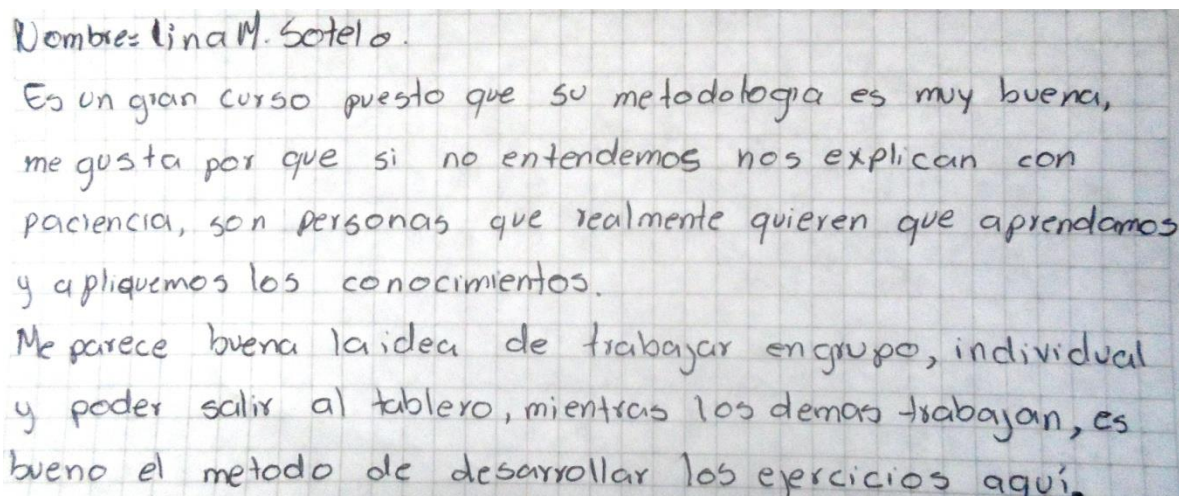 Nombre: lina M. Sotelo.
Es un gran curso puesto que su metodologia es muy buena,
me gusta por que si no entendemos nos explican con
paciencia, son personas que realmente quieren que aprendamos
y apliquemos los conocimientos.
Me parece buena la idea de trabajar en grupo, individual
y poder salir al tablero, mientras los demas trabajan, es
bueno el metodo de desarrollar los ejercicios aquí.